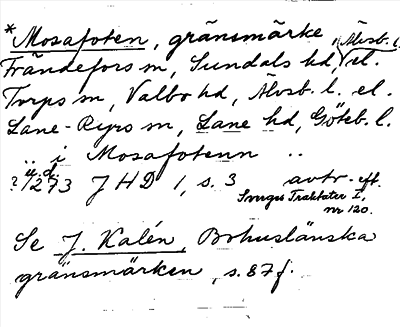 *Mosafoten, gränsmärke, Älvsb. l.
Frändefors sn, Sundals hd, el.
Torps sn, Valbo hd, Älvsb. l. el.
Lane-Ryrs sn, Lane hd, Göteb. l.
.. i Mosafotenn ..
? u.d. 1273 JHD 1, s. 3 avtr. eft.
Sverges Traktater I,
nr 120.
Se J. Kalén, Bohuslänska
gränsmärken, s. 87 f.